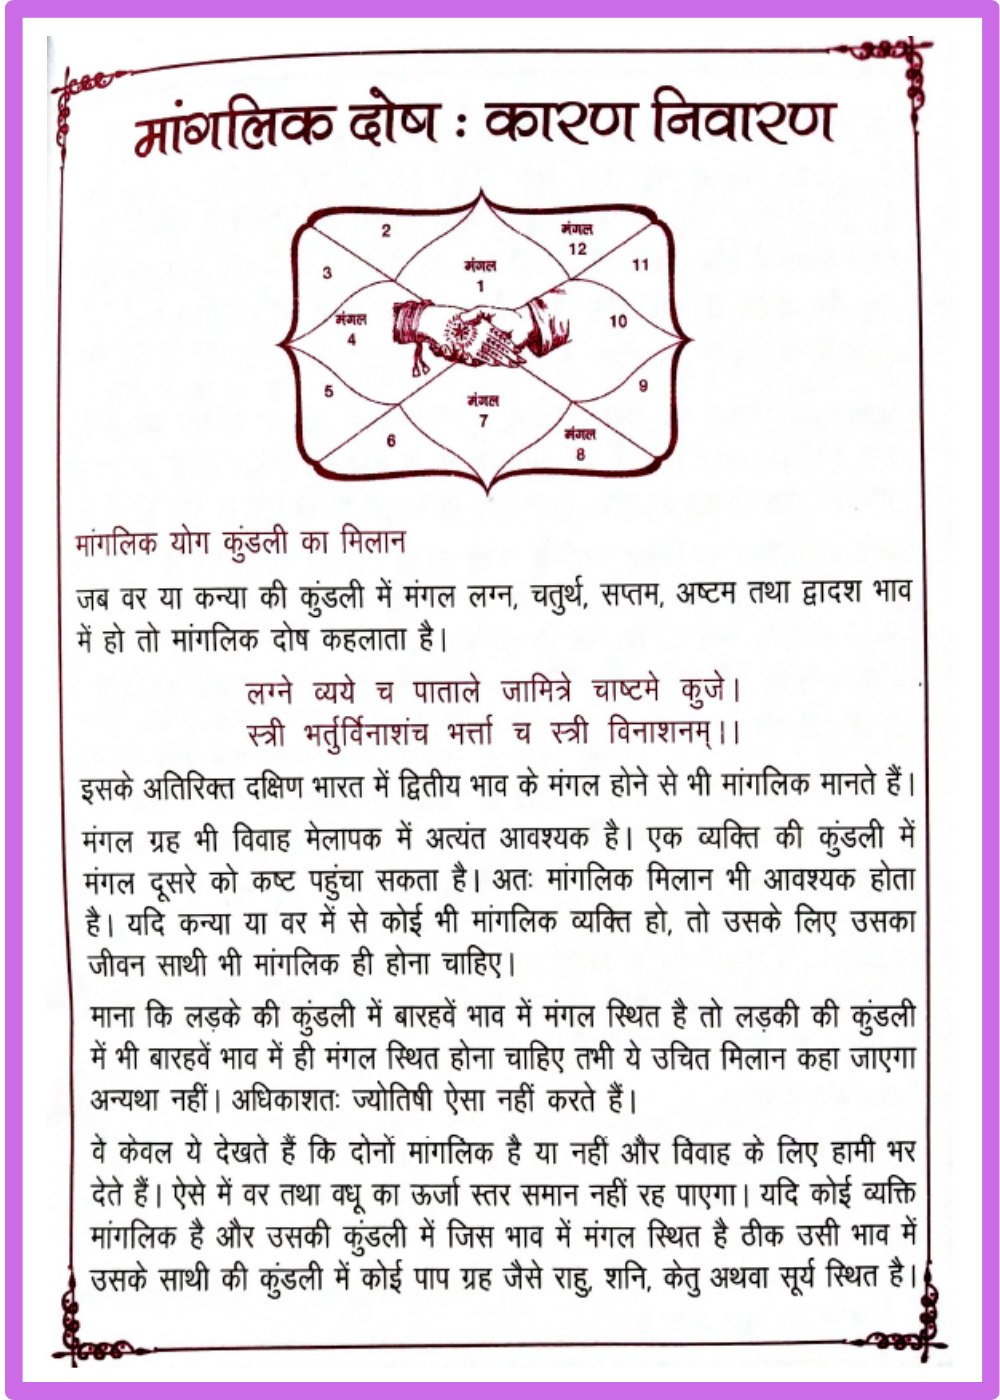 मांगलिक दोष : कारण निवारण
2
मंगल
12
3
मंगल
1
11
मंगल
4
10
5
मंगल
7
9
6
मंगल
8
मांगलिक योग कुंडली का मिलान
जब वर या कन्या की कुंडली में मंगल लग्न, चतुर्थ, सप्तम, अष्टम तथा द्वादश भाव
में हो तो मांगलिक दोष कहलाता है।
लग्ने व्यये च पाताले जामित्रे चाष्टमे कुजे।
स्त्री भर्तुर्विनाशंच भर्त्ता च स्त्री विनाशनम्।।
इसके अतिरिक्त दक्षिण भारत में द्वितीय भाव के मंगल होने से भी मांगलिक मानते हैं।
मंगल ग्रह भी विवाह मेलापक में अत्यंत आवश्यक है। एक व्यक्ति की कुंडली में
मंगल दूसरे को कष्ट पहुंचा सकता है। अतः मांगलिक मिलान भी आवश्यक होता
है। यदि कन्या या वर में से कोई भी मांगलिक व्यक्ति हो, तो उसके लिए उसका
जीवन साथी भी मांगलिक ही होना चाहिए।
माना कि लड़के की कुंडली में बारहवें भाव में मंगल स्थित है तो लड़की की कुंडली
में भी बारहवें भाव में ही मंगल स्थित होना चाहिए तभी ये उचित मिलान कहा जाएगा
अन्यथा नहीं। अधिकाशतः ज्योतिषी ऐसा नहीं करते हैं।
वे केवल ये देखते हैं कि दोनों मांगलिक है या नहीं और विवाह के लिए हामी भर
देते हैं। ऐसे में वर तथा वधू का ऊर्जा स्तर समान नहीं रह पाएगा। यदि कोई व्यक्ति
मांगलिक है और उसकी कुंडली में जिस भाव में मंगल स्थित है ठीक उसी भाव में
उसके साथी की कुंडली में कोई पाप ग्रह जैसे राहु, शनि, केतु अथवा सूर्य स्थित है।